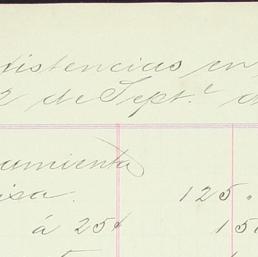 istencias en
2 de Sept.e d
amienta
isa. 125.
á 25¢ 15